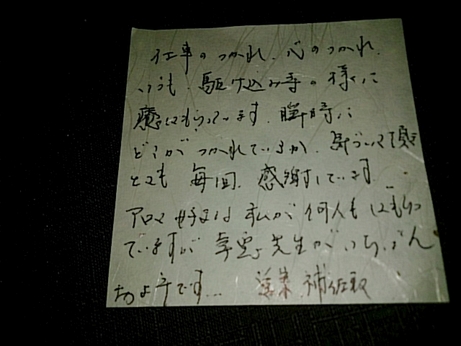 仕事のつかれ、心のつかれ、
いつも、駆け込み寺の様に
癒してもらっています。瞬時に
どこが つかれているか、気づいて頂き
とても 毎回、感謝しています
アロマ 好きな 私が 何人も してもらっ
ていますが 先生が いちばん
です... 補佐